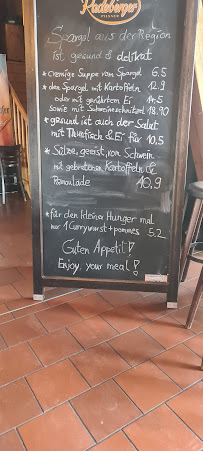 Radeberger
PILSNER
Spargel aus der Region
ist gesund & delikat
* cremige Suppe vom Spargel 6.5
* den Spargel mit Kartoffeln 12.9
oder mit gerührtem Ei 14.5
sowie mit Schweineschnitzel 18.90
* gesund ist auch der Salat
mit Thunfisch & Ei für 10,5
* Sülze, geeist, vom Schwein
mit gebratenen Kartoffeln &
Remoulade 10,9
* für den kleinen Hunger mal
nur 1 Currywurst + pommes 5.2
Guten Appetit!
Enjoy your meal!